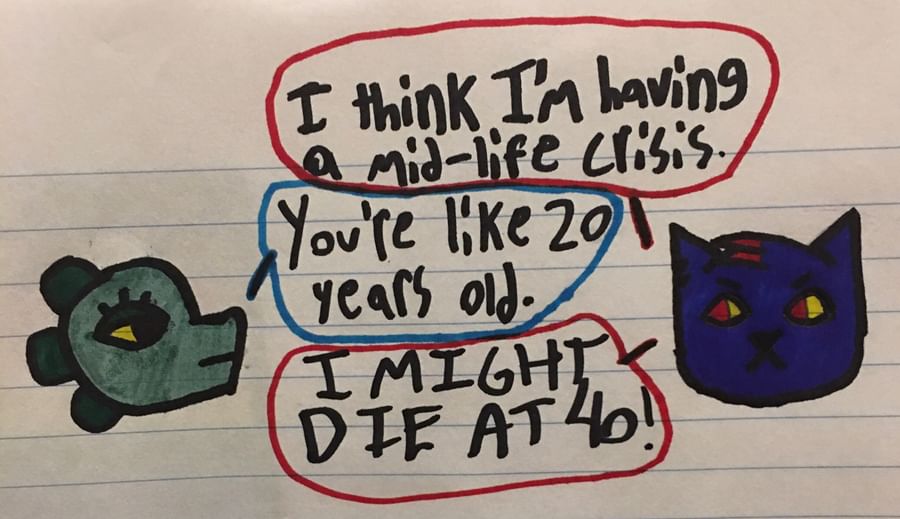 I think I'm having
a mid-life crisis.
You're like 20
years old.
I MIGHT
DIE AT 40!